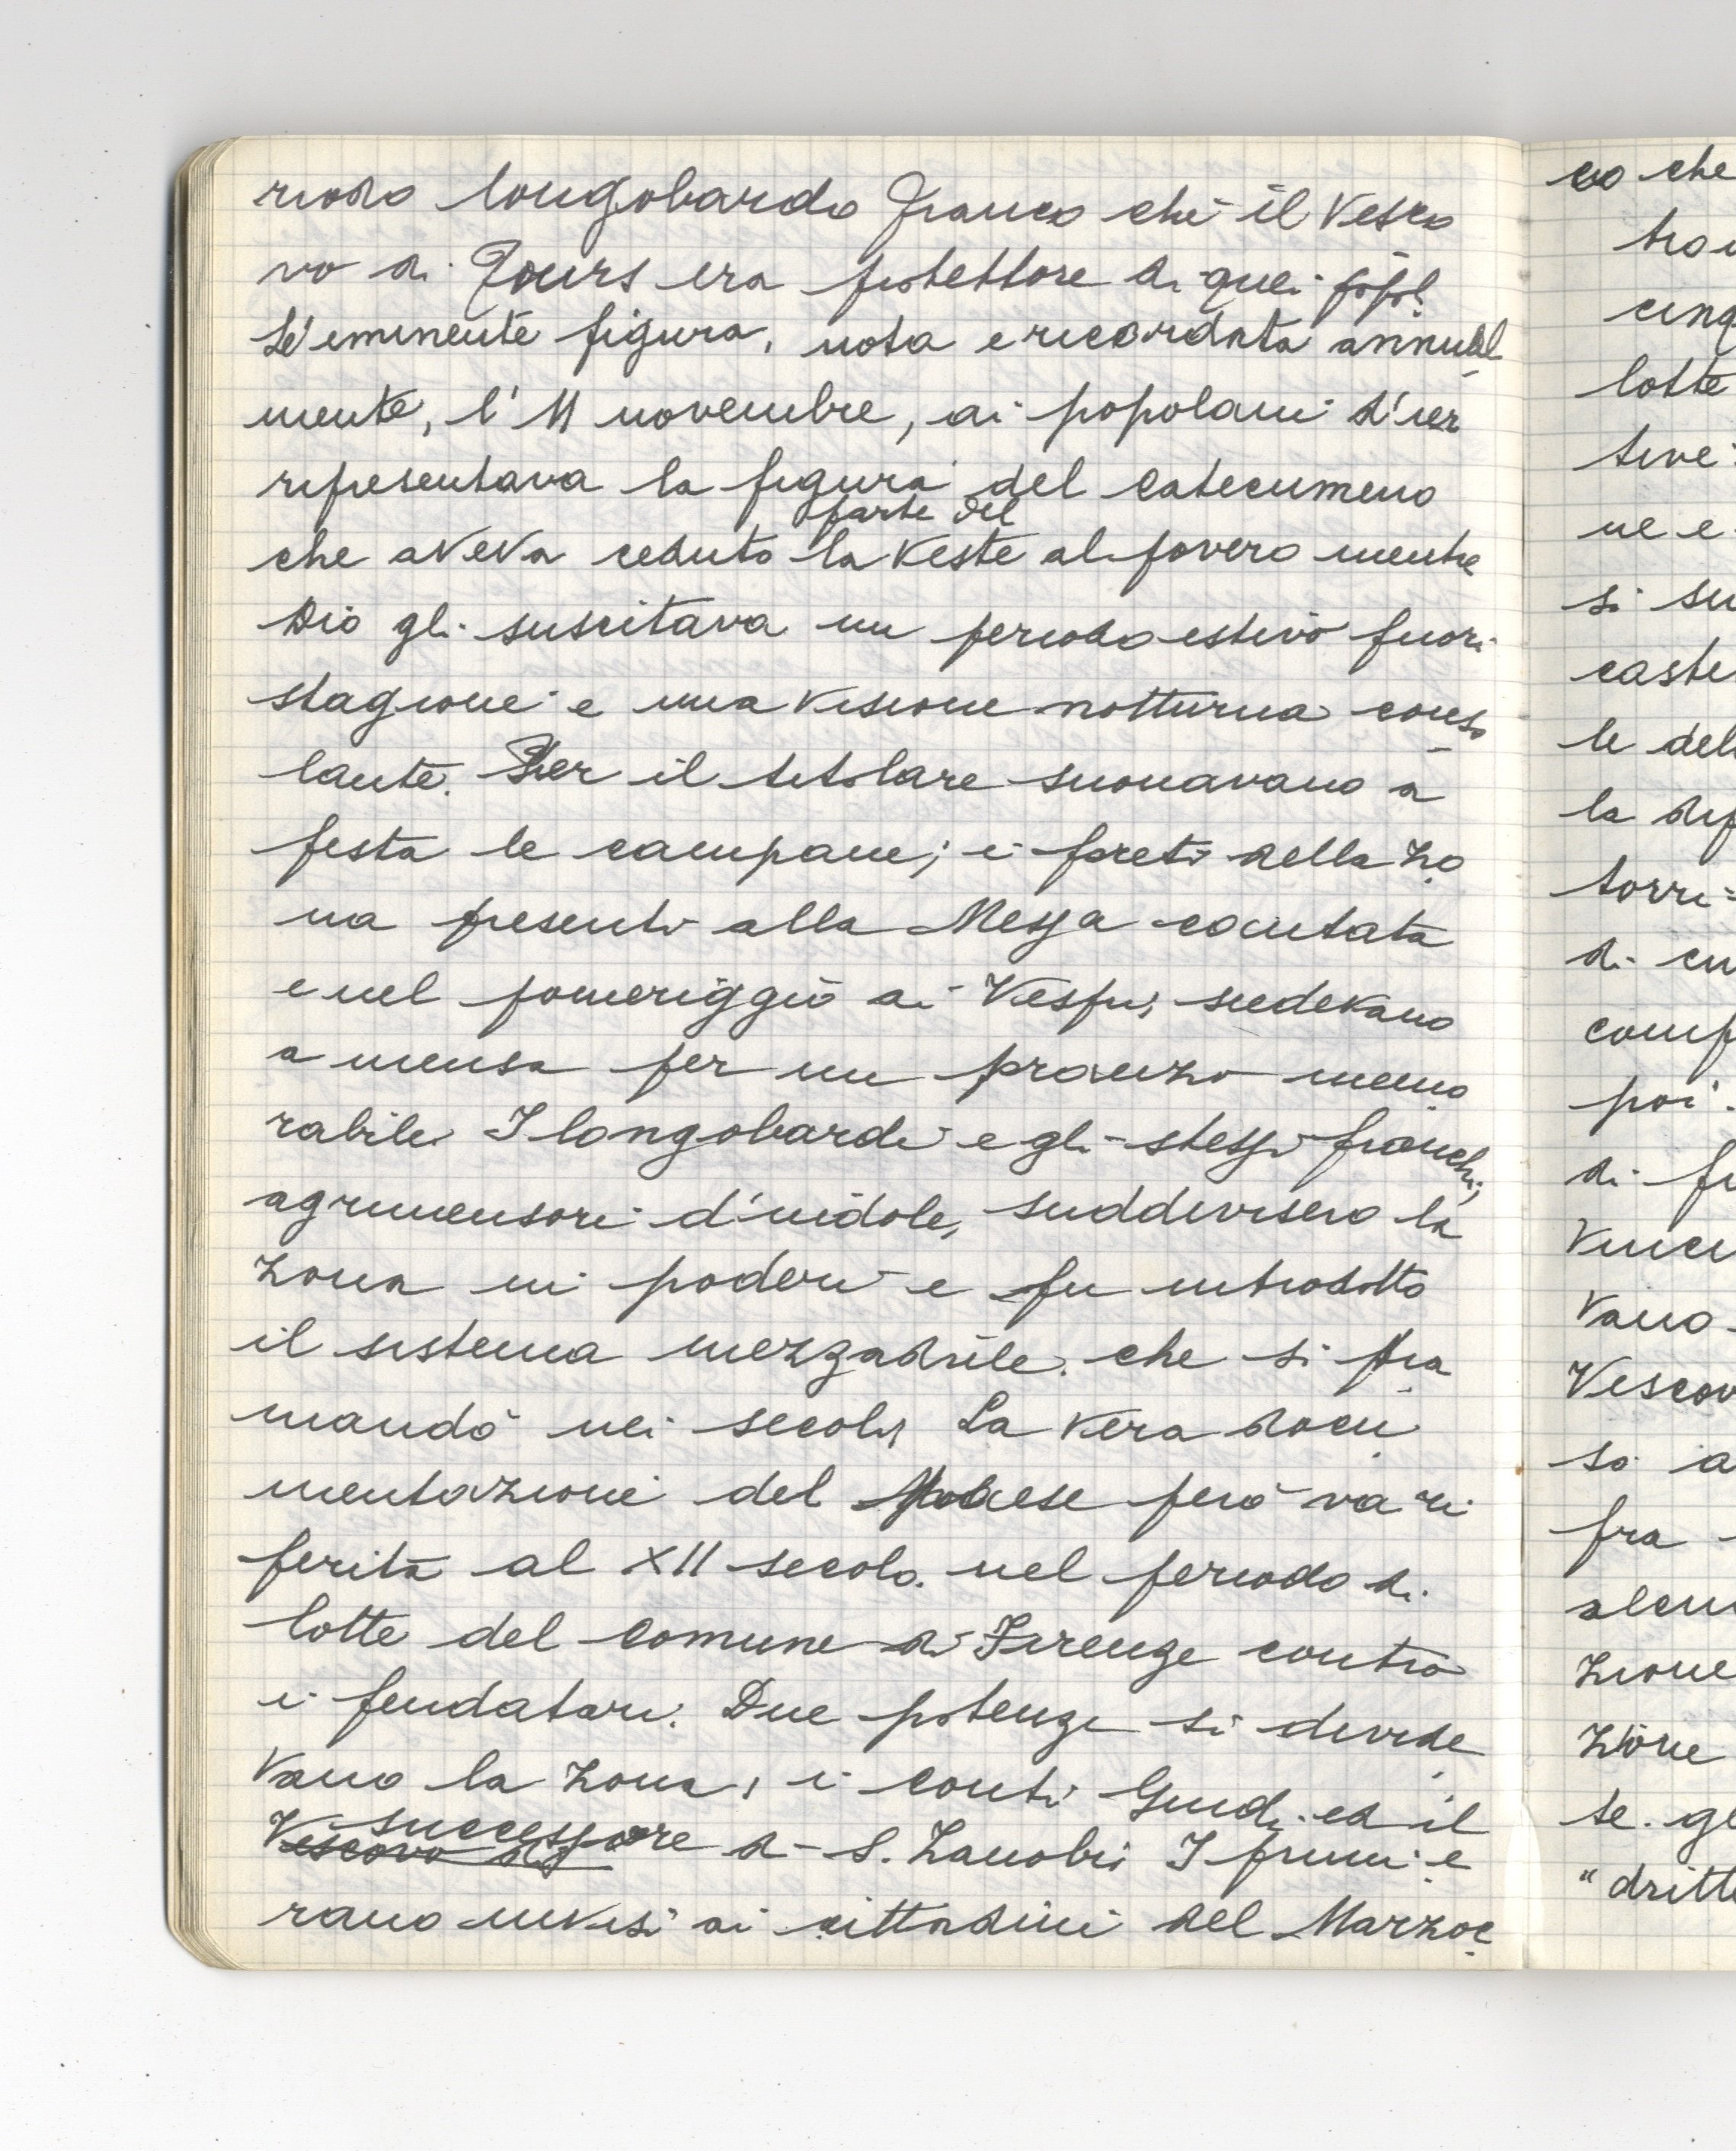 riodo longobardo franco chè il Vesco
vo di Tours era protettore di quei popoli
L'eminente figura, nota e ricordata annual
mente, l'11 novembre, ai popolani d'ier
ripresentava la figura del catecumeno
parte del
che aveva ceduto la veste al povero mentre
Dio gli suscitava un periodo estivo fuori
stagione e una visione notturna conso
lante. Per il titolare suonavano a
festa le campane; i preti della zo
na presenti alla Messa cantata
e nel pomeriggio ai Vespri, sedevano
a mensa per un pranzo memo
rabile. I longobardi e gli stessi franchi,
agrimensori d'indole, suddivisero la
zona in poderi e fu introdotto
il sistema mezzadrile che si tra
mandò nei secoli. La vera docu
mentazione del però va ri
ferita al XII secolo. nel periodo di
lotte del comune di Firenze contro
i feudatari. Due potenze si divide
vano la zona, i conti Guidi ed il
successore di S. Zanobi. I primi e
rano invisi ai cittadini del Marzoc
co che
cinq
lotte
tive
ne e
si su
caste
le del
la dif
torri
di cu
comp
poi
di fu
Vinci
vano
Vescov
so a
fra
alcu
zione
zione
se. ge
"dritt